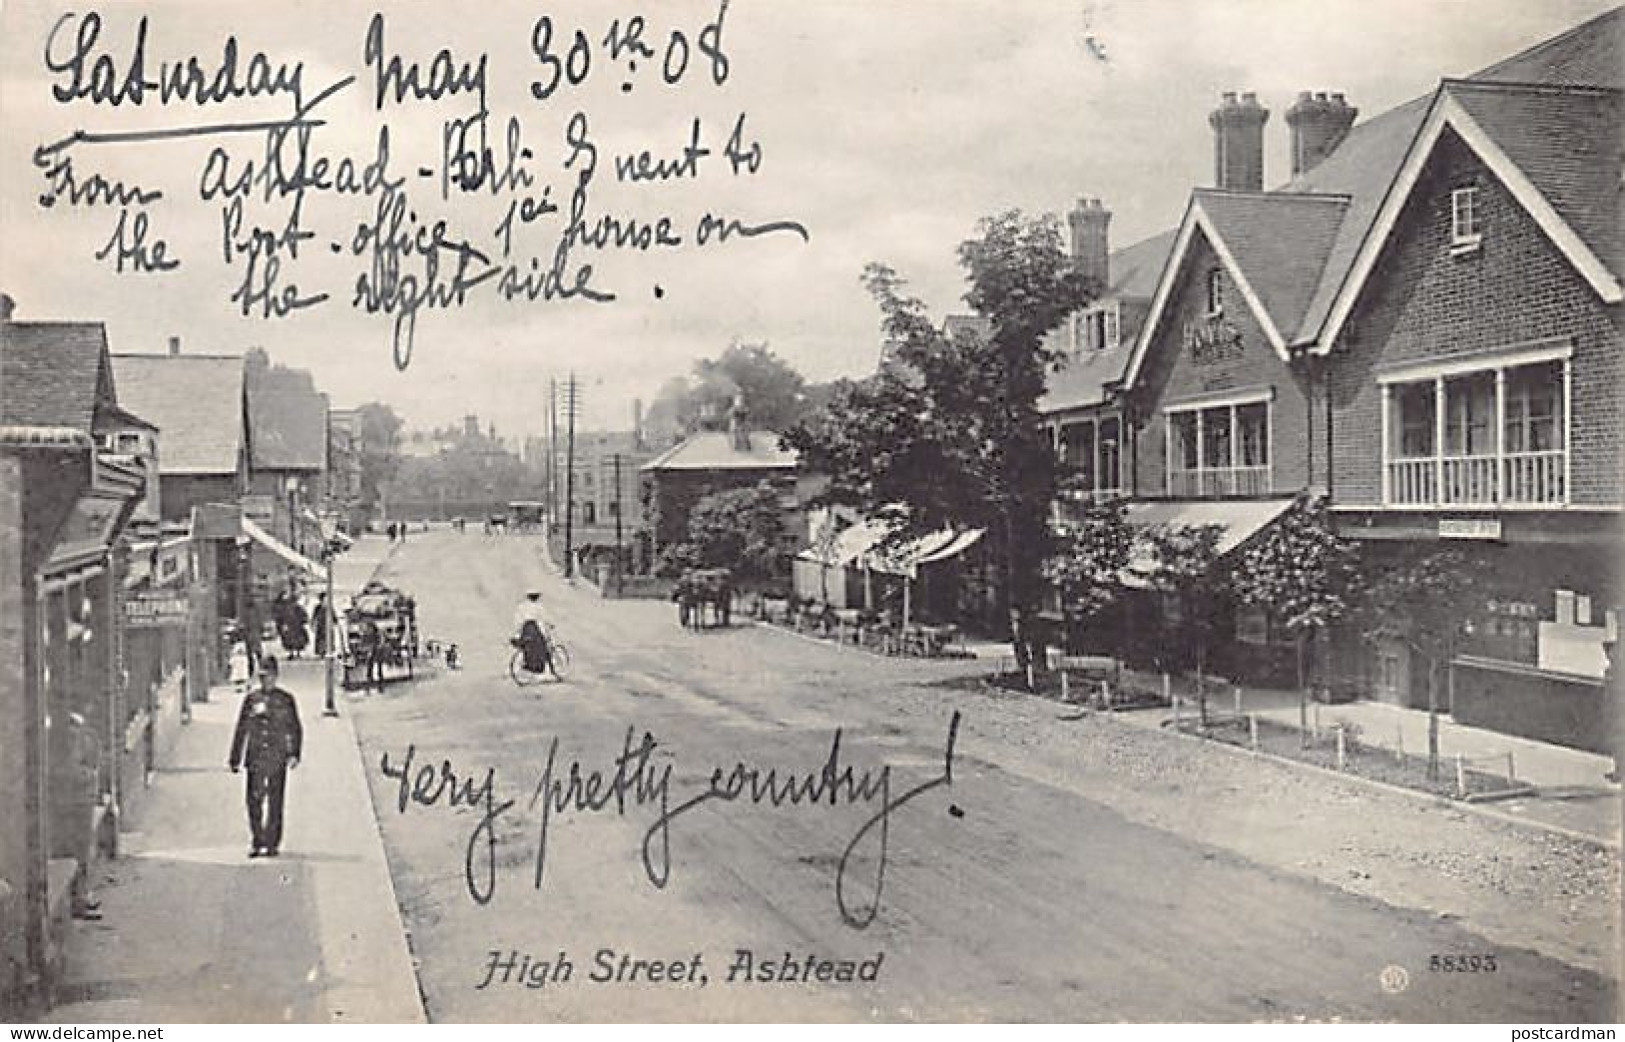 Saturday May 30th. 08
From Ashtead - I went to
the Post-office, 1st house on
the right side.
TELEPHONE
Very pretty country!
High Street, Ashtead
58393
www.delcampe.net
postcardman